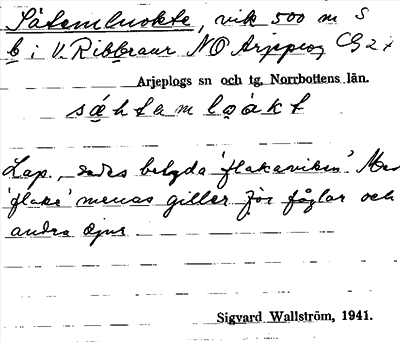 Såtemluokte, vik 500 m S
b i V. Ribbraur NO Arjeplog CG 2 x
Arjeplogs sn och tg, Norrbottens län.
sáhtamloakt
Lap., sades betyda 'flakaviken'. Med
'flake' menas giller för fåglar och
andra djur
Sigvard Wallström, 1941.